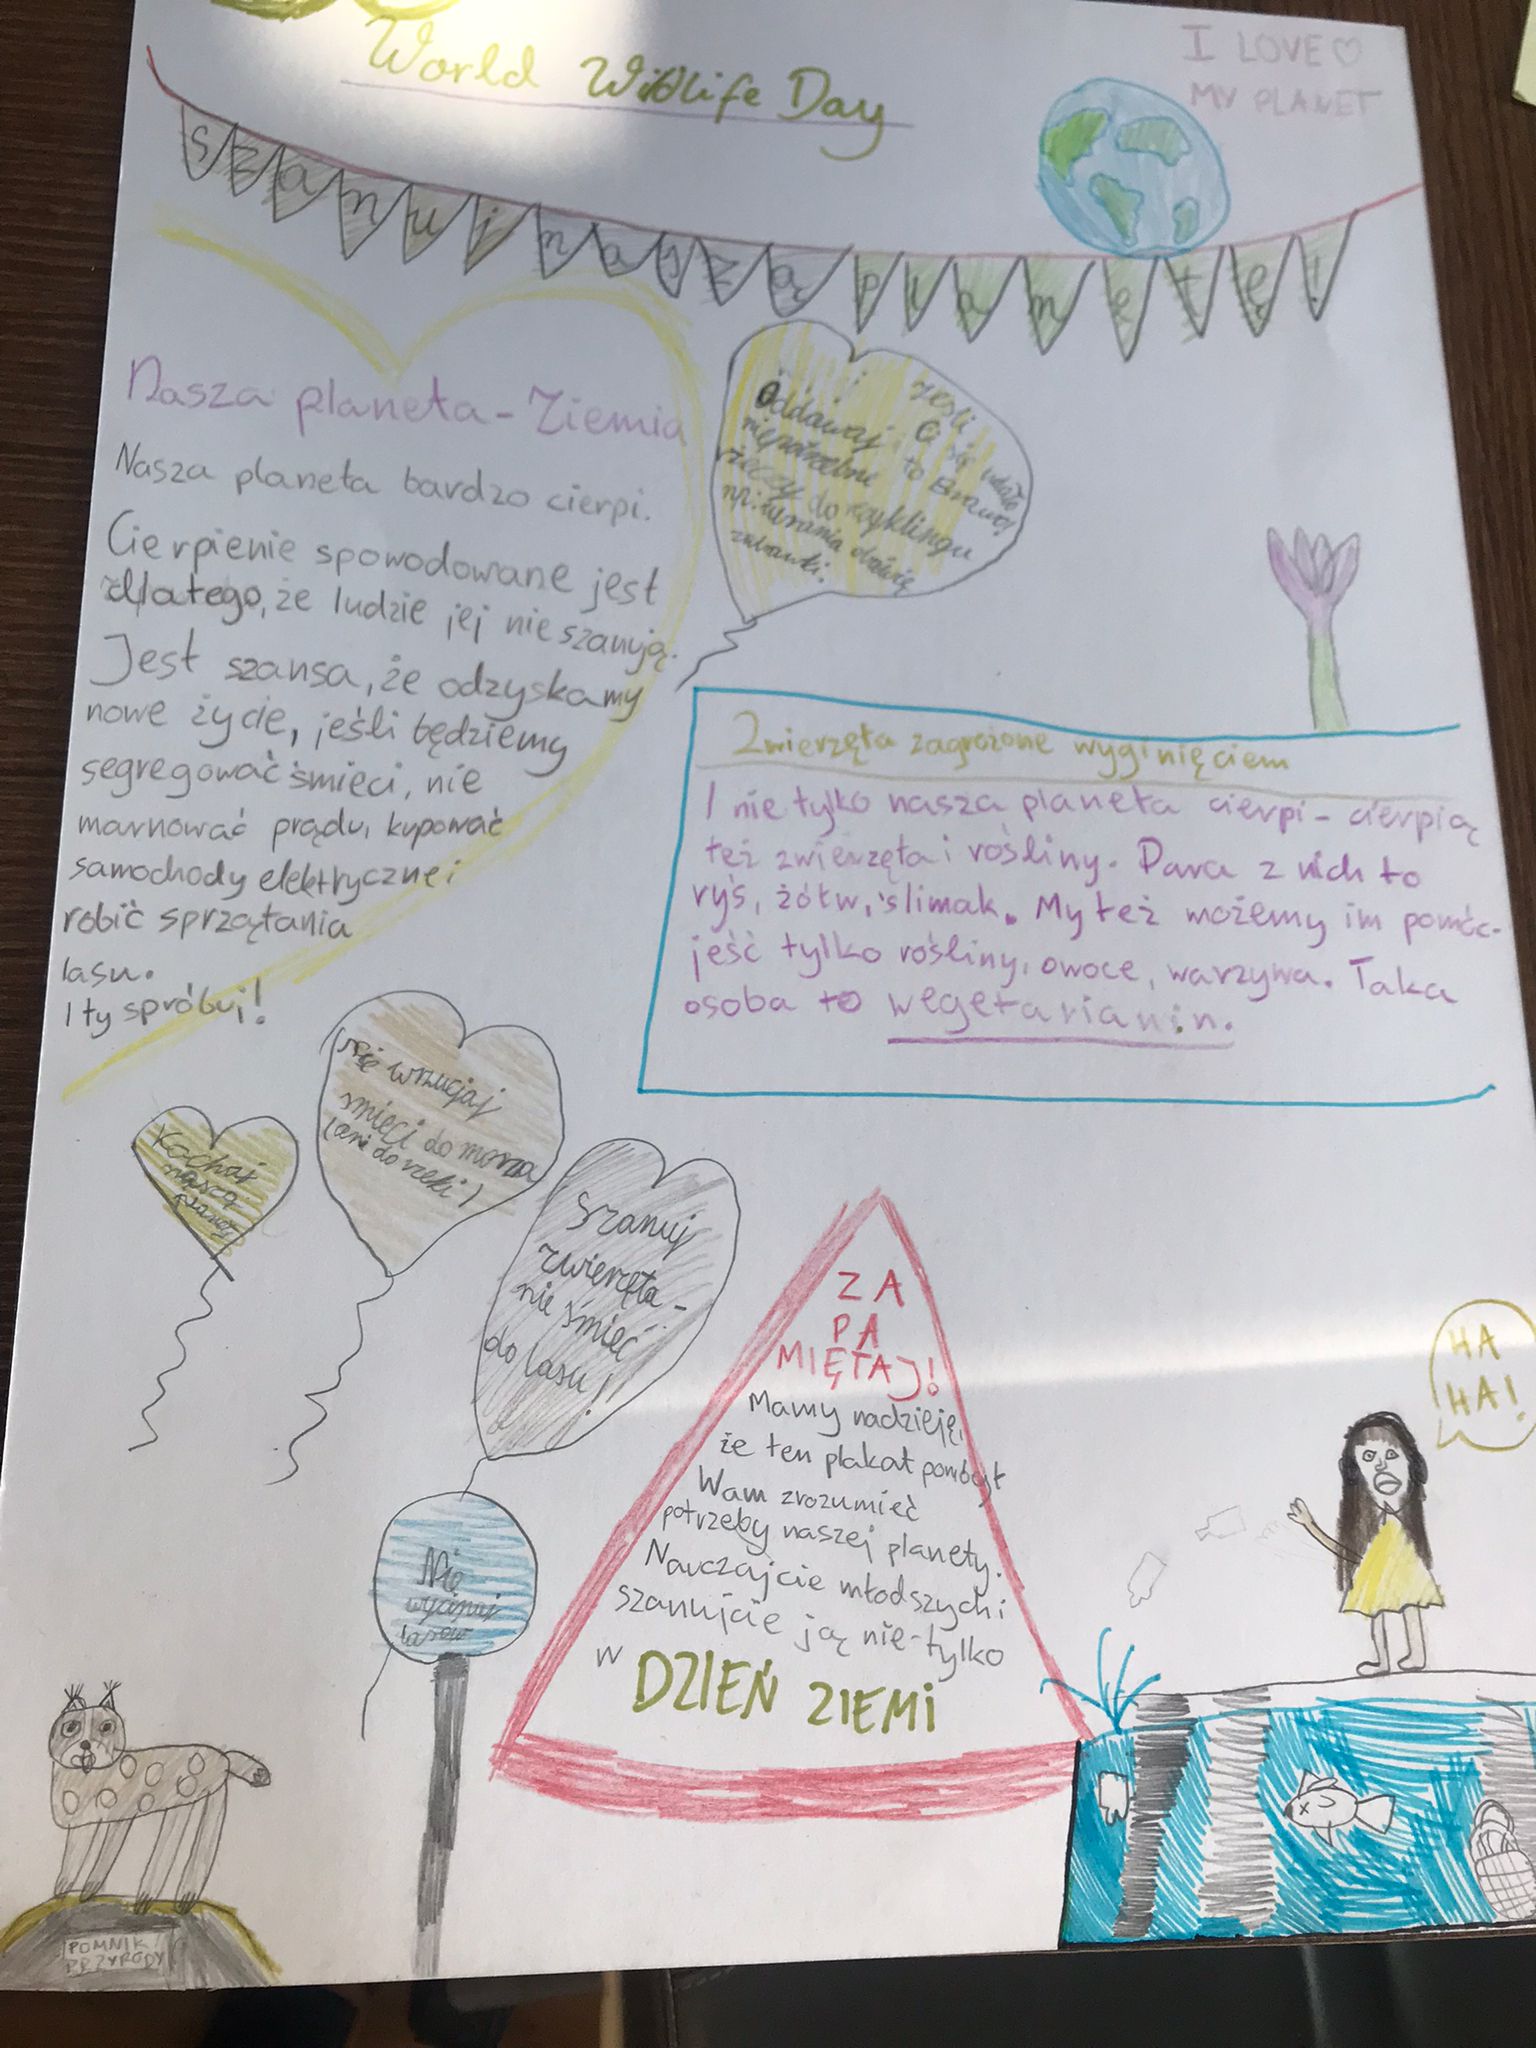 World Wildlife Day
I LOVE ♡
MY PLANET
Szanuj naszą planetę!
Nasza planeta - Ziemia
Nasza planeta bardzo cierpi.
Cierpienie spowodowane jest
dlatego, że ludzie jej nie szanują.
Jest szansa, że odzyskamy
nowe życie, jeśli będziemy
segregować śmieci, nie
marnować prądu, kupować
samochody elektryczne i
robić sprzątania
lasu.
I ty spróbuj!
Oddawaj
niepotrzebne
rzeczy do recyklingu
np. ubrania
zabawki.
jeśli
Ci się udało
to Brawo!
Zwierzęta zagrożone wyginięciem
I nie tylko nasza planeta cierpi - cierpią
też zwierzęta i rośliny. Para z nich to
ryś, żółw, ślimak. My też możemy im pomóc-
jeść tylko rośliny, owoce, warzywa. Taka
osoba to wegetarianin.
Kochaj
naszą
planetę
Nie wrzucaj
śmieci do morza
(ani do rzeki)
Szanuj
zwierzęta -
nie śmieć
do lasu!
Nie
wycinaj
lasów
ZA
PA
MIĘTAJ!
Mamy nadzieję,
że ten plakat pomógł
Wam zrozumieć
potrzeby naszej planety.
Nauczajcie młodszych i
szanujcie ją nie-tylko
w DZIEŃ ZIEMI
HA
HA!
POMNIK
PRZYRODY